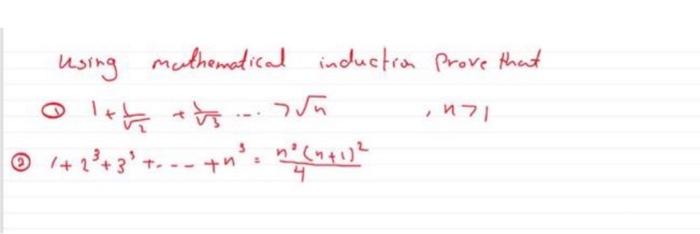 using mathematical induction prove that
① 1 + 1/√2 + 1/√3 .... > √n , n > 1
② 1 + 2³ + 3³ + .... + n³ = n²(n+1)²/4